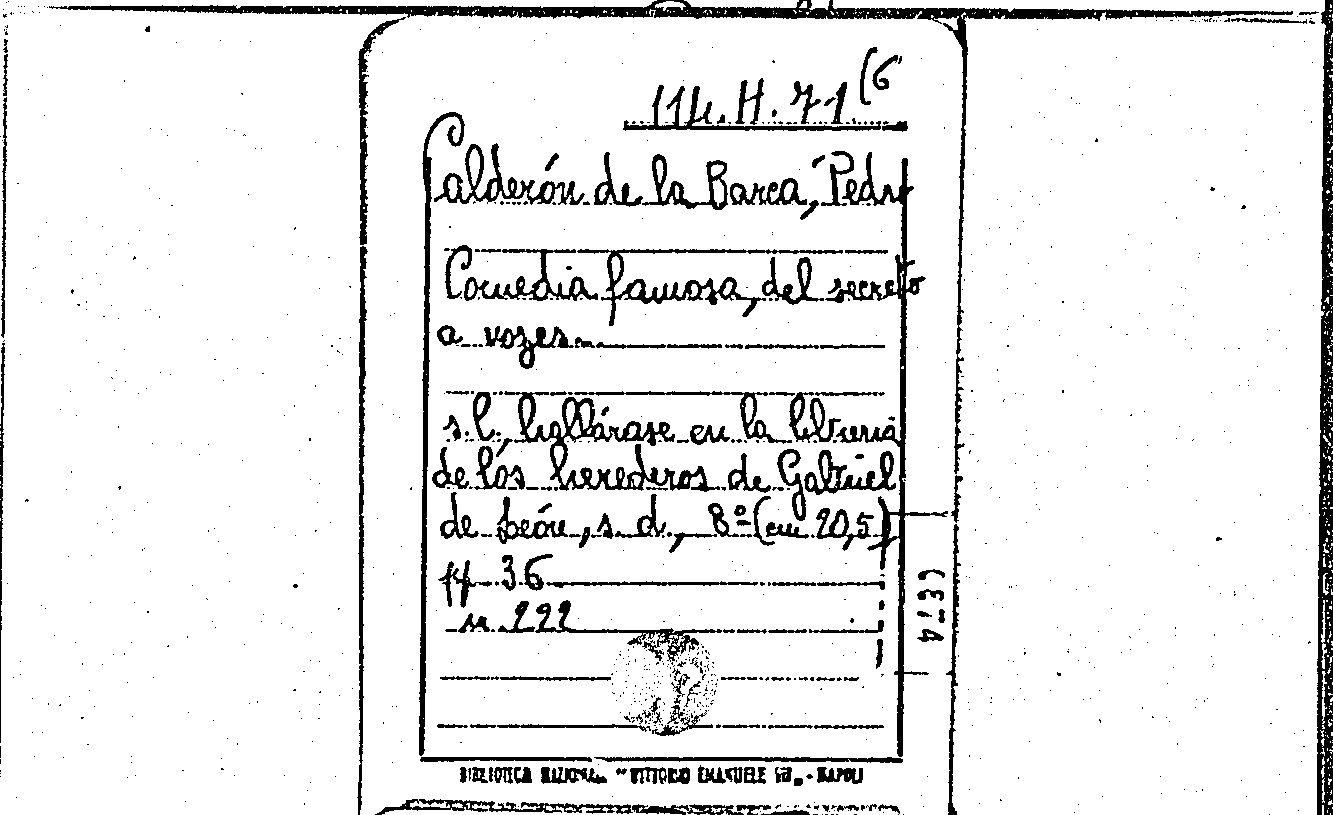 114. H. 71 (6
Calderón de la Barca, Pedro
Comedia famosa, del secreto
a vozes...
s. l., hallárase en la libreria
de los herederos de Gabriel
de León, s. d., 8º (cm 20,5)
pp. 36
n. 222
BIBLIOTECA NAZIONALE "VITTORIO EMANUELE III" - NAPOLI